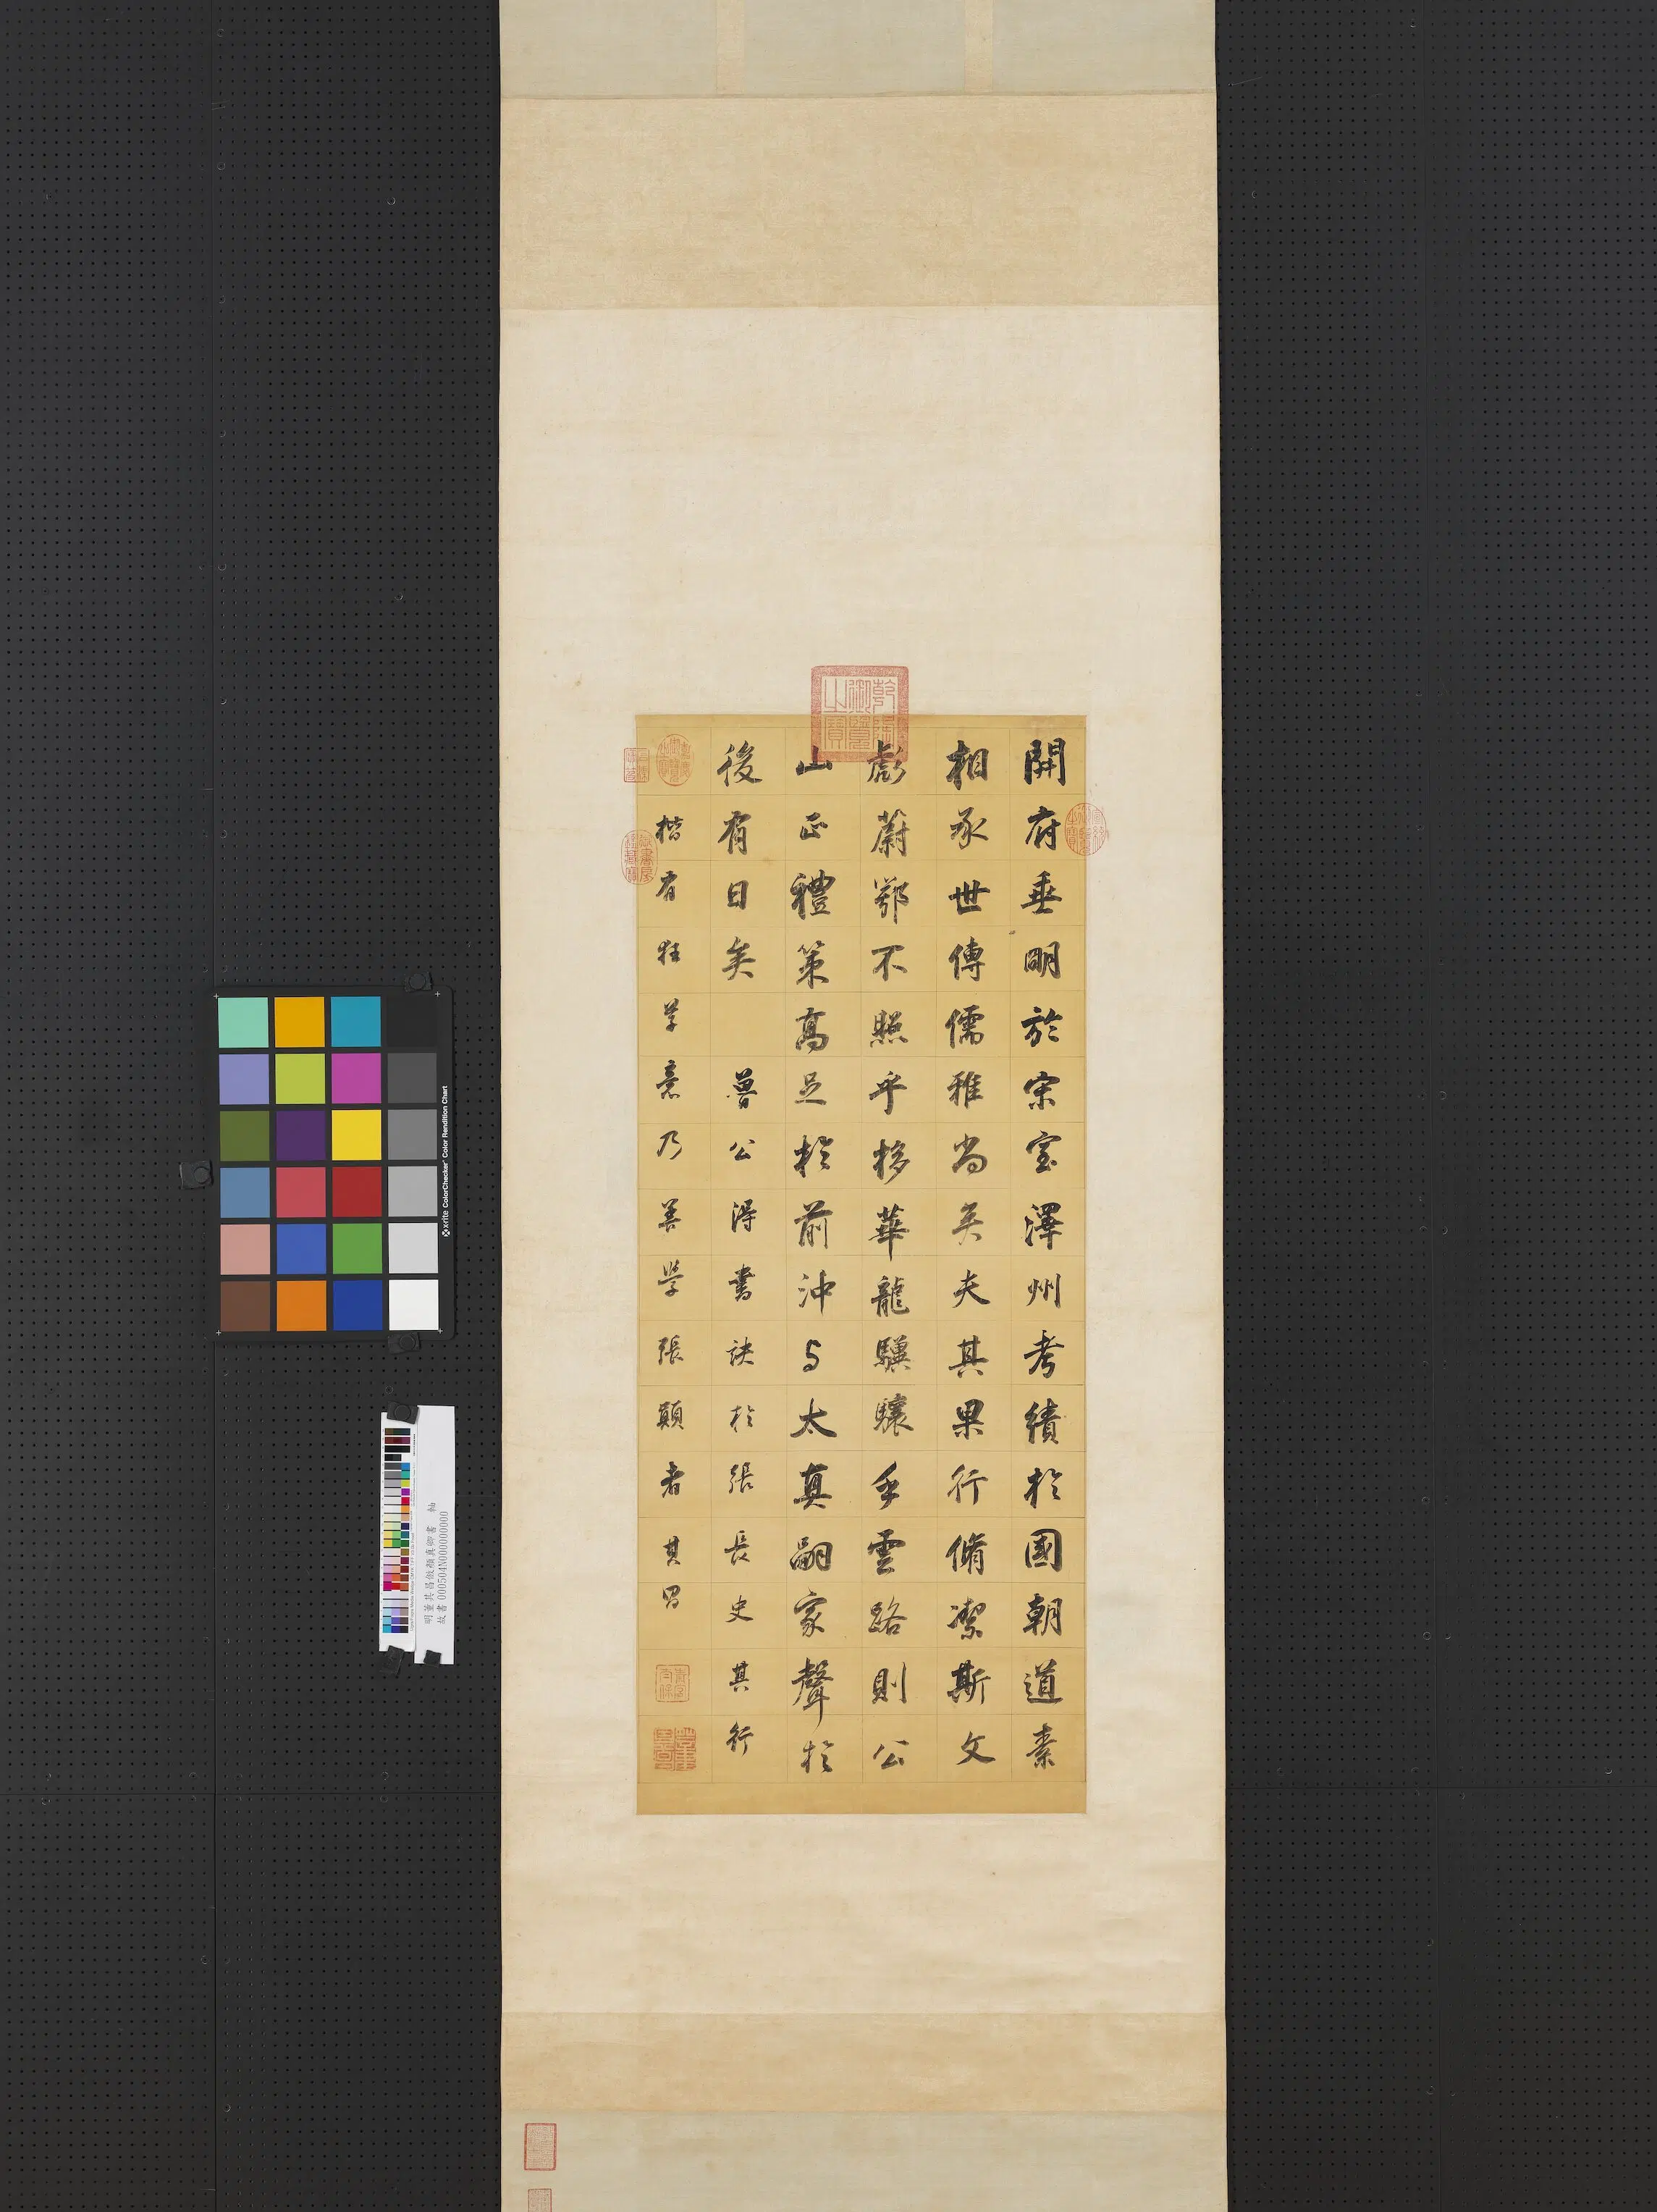 開府垂明於宋室澤州考績於國朝道素
相承世傳儒雅尚矣夫其果行脩潔斯文
彪蔚鄂不照乎栘華龍驥驤乎雲路則公
山正禮策高足於前沖与太真嗣家聲於
後有日矣 魯公得書訣於張長史其行
楷有狂草意乃善學張顛者其昌
乾隆御覽之寶
宣統御覽之寶
嘉慶御覽之寶
御書房鑑藏寶
x-rite ColorChecker Color Rendition Chart
明董其昌倣顏真卿書 軸
故書000504N000000000